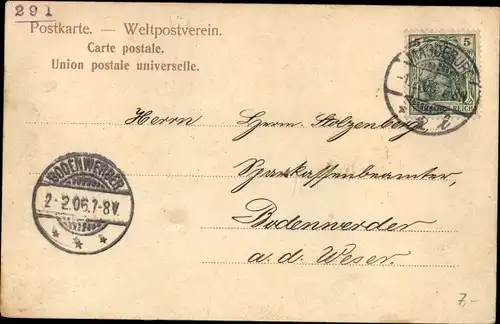 291
Postkarte. — Weltpostverein.
Carte postale.
Union postale universelle.
5 5
REICH
Herrn Herm. Stolzenberg
Sparkassenbeamter,
Bodenwerder
a. d. Weser.
BODENWERDER
2-2.06.7-8V.
* * *
7,-